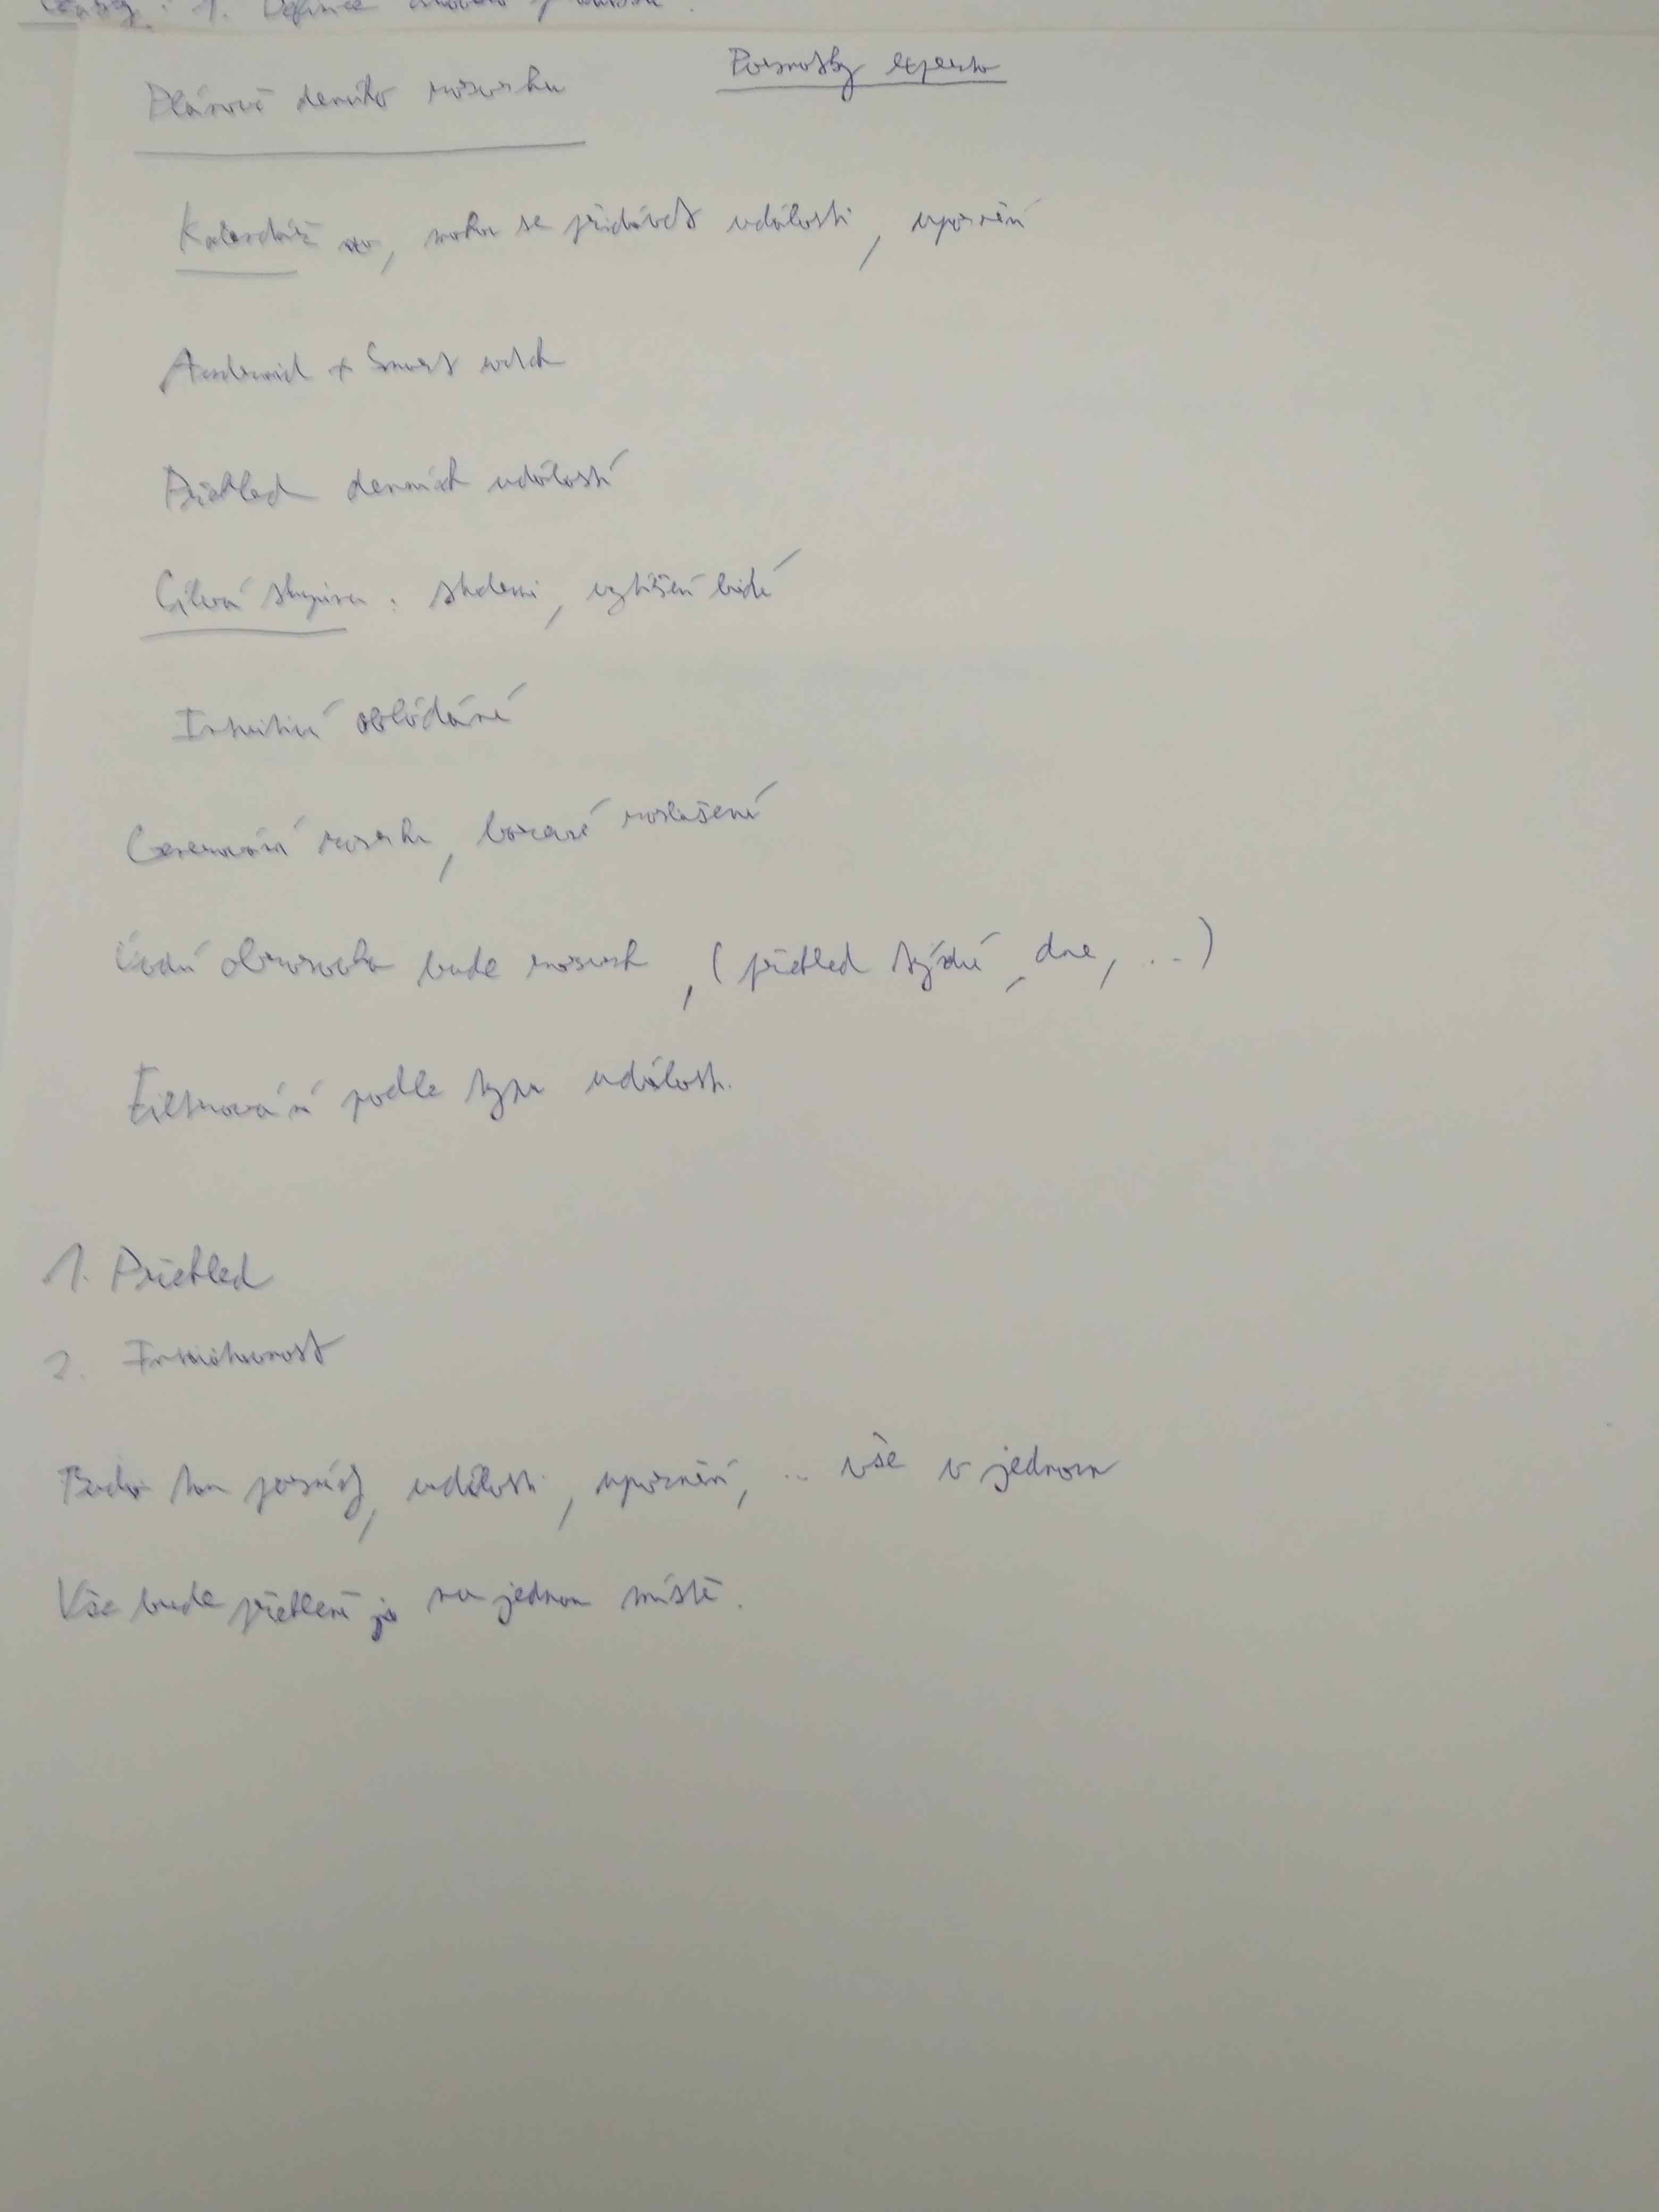 1. Definice
Poznámky experta
Plánovač denního rozvrhu
Kalendář, mohu se přidávat události, upozornění
Android + Smart watch
Přehled denních událostí
Cílová skupina: studenti, vytížení lidé
Intuitivní ovládání
Generování rozvrhu, barevné rozlišení
Úvodní obrazovka bude rozvrh, (přehled týdně, dne, ...)
Filtrování podle typu události.
1. Přehled
2. Intuitivnost
Budou tam události, upozornění, .. vše v jednom
Vše bude přehledně na jednom místě.